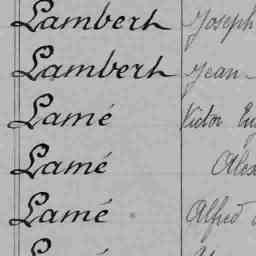 Lambert Joseph
Lambert Jean
Lamé Victor
Lamé
Lamé Alfred